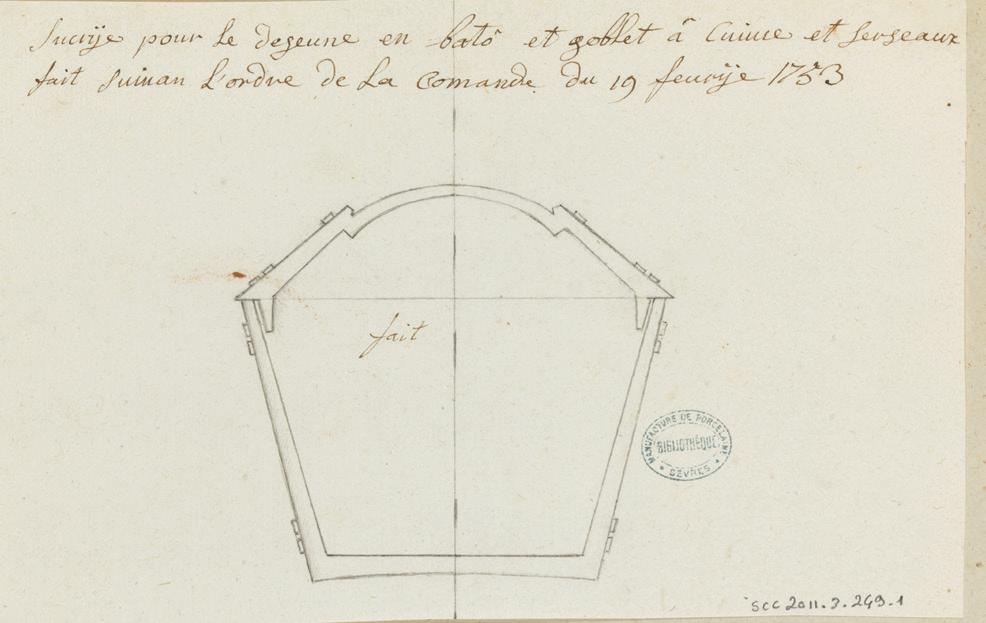 Sucrije pour le degeune en batô et goblet â Cuiuue et Serseaux
fait Suiuan L'ordre de La Comande du 19 feurije 1753
fait
MANUFACTURE DE PORCELAINE
BIBLIOTHÈQUE
SÈVRES
SCC 2011.3.249.1